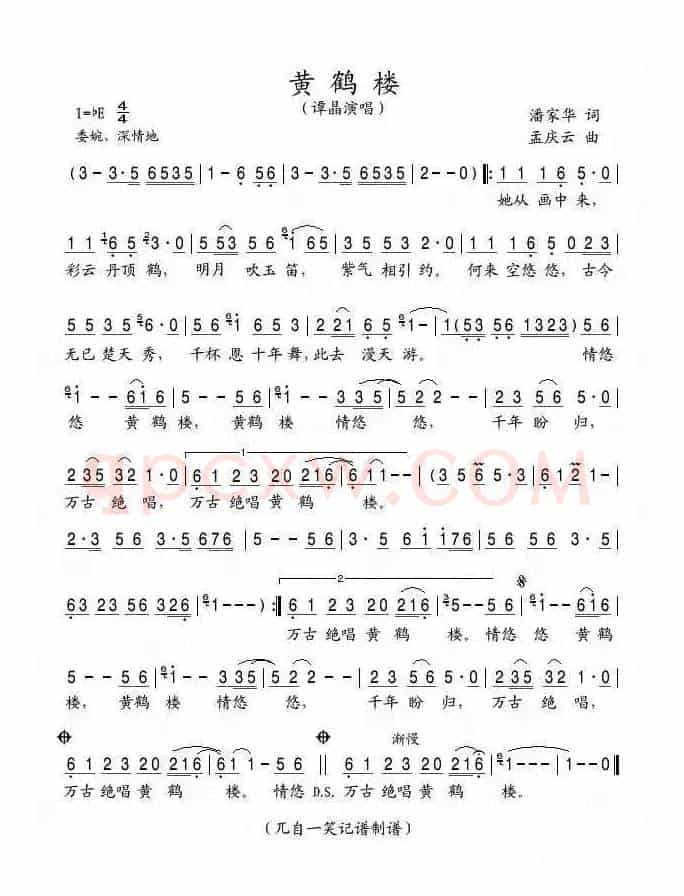 黄鹤楼
（谭晶演唱）
1=♭E 4/4
潘家华 词
委婉、深情地
孟庆云 曲
(3－3·5 6535|1－6 56|3·5 3 6535|2－－0)‖:1 1 1 6 5·0|
她从画中来，
1 1 6 5 3·0|5 53 5 6 1 65|3 5 5 3 2·0|1 1 1 6 5 0 23|
彩云丹顶鹤， 明月 吹玉笛， 紫气相引约。 何来空悠悠，古今
5 5 3 5 6·0|5 5 6 1 6 5 3|2 21 6 5 1－|1(53 56 1323)56|
无已楚天秀， 千杯恩十年舞，此去 漫天游。 情悠
1－－616|5－－56|1－1 335|5 22－－|2 3 5 6 5·0|
悠 黄鹤楼， 黄鹤楼 情悠悠， 千年盼归，
235 32 1·0|6 1 23 20 216|61－－|(35 6 5·3|6·12 1－|
万古绝唱， 万古绝唱黄鹤 楼。
qpcxw.com
2·35 3 56 5676|5－－56|3·5 3 5 61 1176|5－－3|
63 23 56 326|1－－－):‖6 1 23 20 216|5－56|1－－616|
万古绝唱黄鹤 楼。情悠 悠 黄鹤
5－－56|1－1 335|522－－|2 3 56 5·0|235 32 1·0|
楼， 黄鹤楼 情悠 悠， 千年盼归， 万古绝唱，
渐慢
6 1 23 20 216|61 1－56‖6 1 23 20 216|1－－－|1－－0‖
万古绝唱黄鹤 楼。情悠 D.S. 万古绝唱黄鹤 楼。
（兀自一笑记谱制谱）